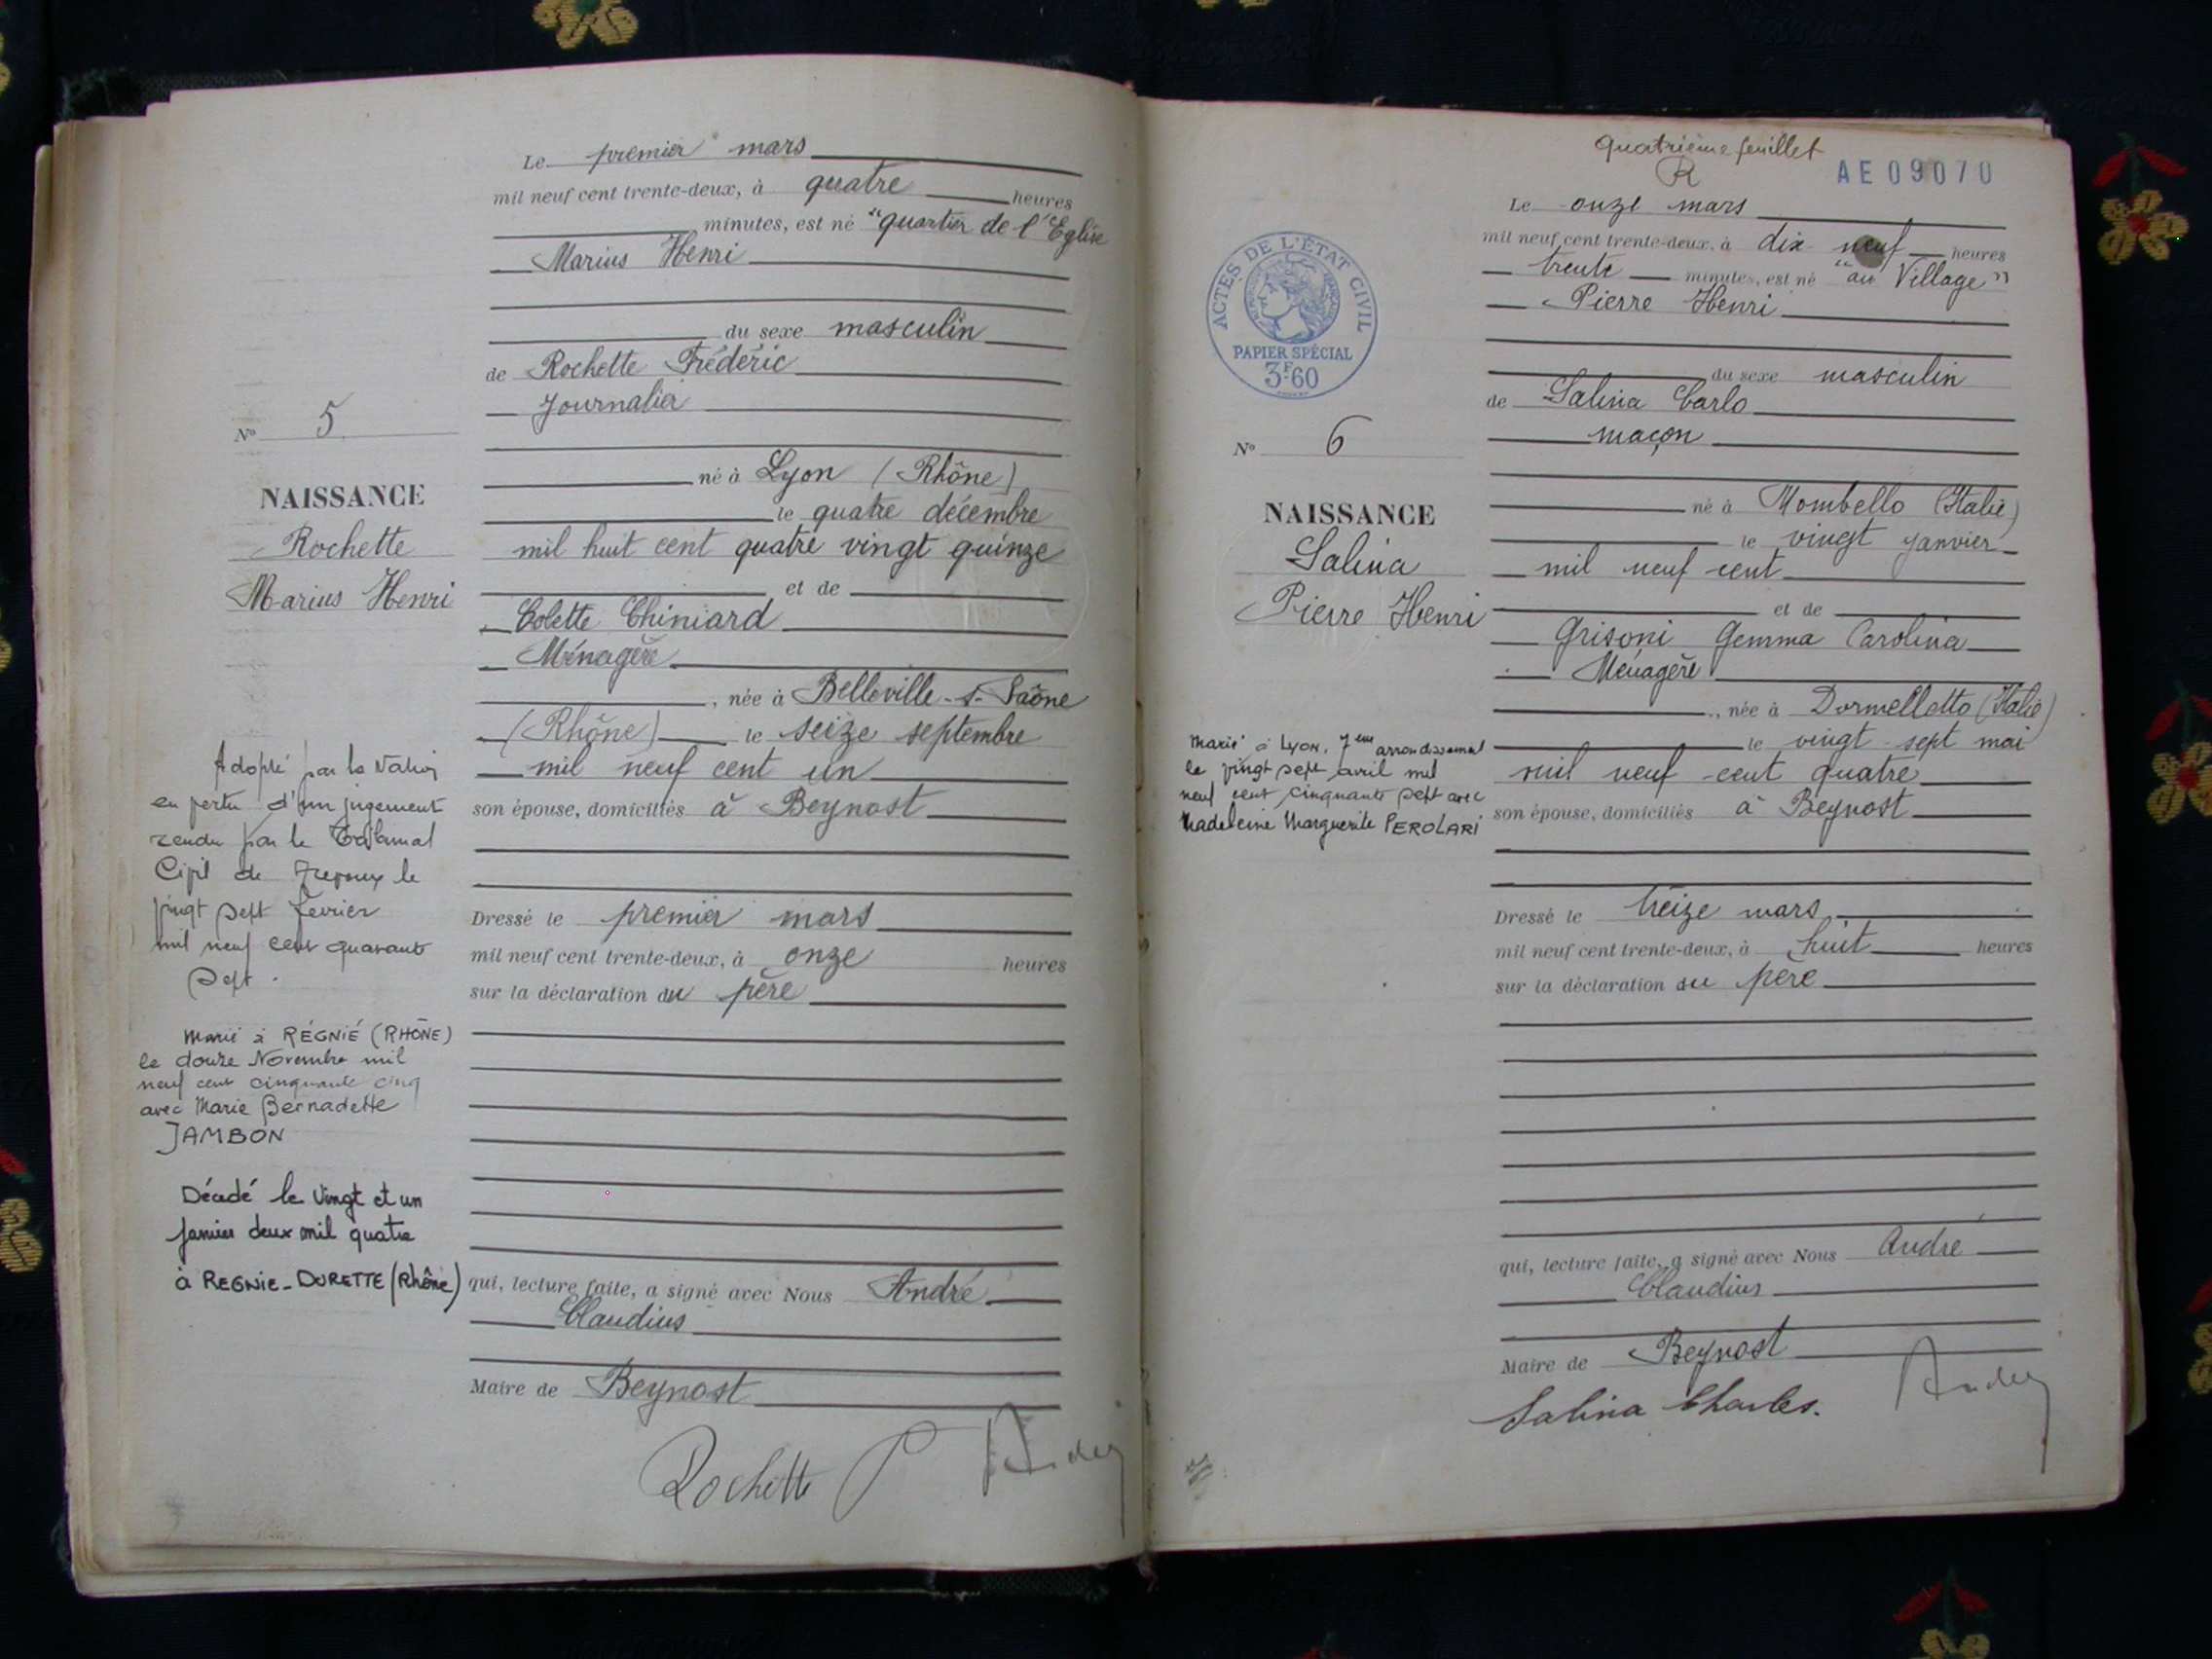 Le premier mars
mil neuf cent trente-deux, à quatre heures
minutes, est né "quartier de l'Eglise
Marius Henri
du sexe masculin
de Rochette Frédéric
Journalier
né à Lyon (Rhône)
le quatre décembre
mil huit cent quatre vingt quinze
et de
Colette Chiniard
Ménagère
, née à Belleville-s-Saône
(Rhône) le seize septembre
mil neuf cent un
son épouse, domiciliés à Beynost
Dressé le premier mars
mil neuf cent trente-deux, à onze heures
sur la déclaration du père
qui, lecture faite, a signé avec Nous André
Claudius
Maire de Beynost
Rochette
André
No 5
NAISSANCE
Rochette
Marius Henri
Adopté par la Nation
en vertu d'un jugement
rendu par le Tribunal
Civil de Trévoux le
vingt sept février
mil neuf cent quarante
sept.
Marié à RÉGNIÉ (RHÔNE)
le douze Novembre mil
neuf cent cinquante cinq
avec Marie Bernadette
JAMBON
Décédé le vingt et un
janvier deux mil quatre
à REGNIE-DURETTE (Rhône)
quatrième feuillet
R
AE 09070
Le onze mars
mil neuf cent trente-deux, à dix neuf heures
trente minutes, est né "au Village"
Pierre Henri
du sexe masculin
de Salina Carlo
maçon
né à Mombello (Italie)
le vingt janvier
mil neuf cent
et de
Grisoni Gemma Carolina
Ménagère
, née à Dormelletto (Italie)
le vingt-sept mai
mil neuf cent quatre
son épouse, domiciliés à Beynost
Dressé le treize mars
mil neuf cent trente-deux, à huit heures
sur la déclaration du père
qui, lecture faite, a signé avec Nous André
Claudius
Maire de Beynost
Salina Charles.
André
ACTES DE L'ÉTAT CIVIL
PAPIER SPÉCIAL
3F60
No 6
NAISSANCE
Salina
Pierre Henri
Marié à Lyon, 7eme arrondissement
le vingt sept avril mil
neuf cent cinquante sept avec
Madeleine Marguerite PEROLARI